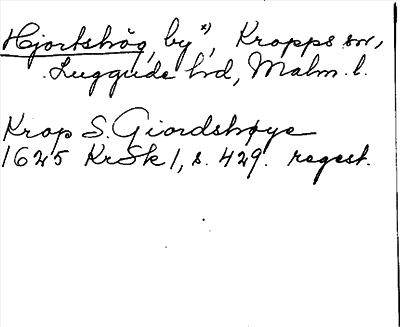 Hjortshög, by *), Kropps sn,
Luggude hd, Malm. l.
Krop S. Giordshøye
1625 KrSk 1, s. 429. regest.